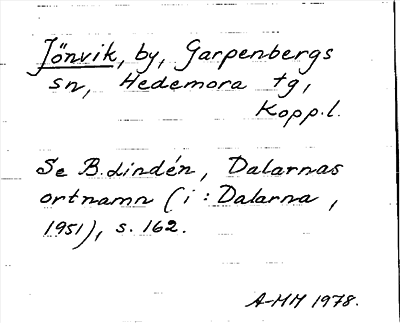 Jönvik, by, Garpenbergs
sn, Hedemora tg,
Kopp.l.
Se B. Lindén, Dalarnas
ortnamn (i: Dalarna,
1951), s. 162.
A-MM 1978.